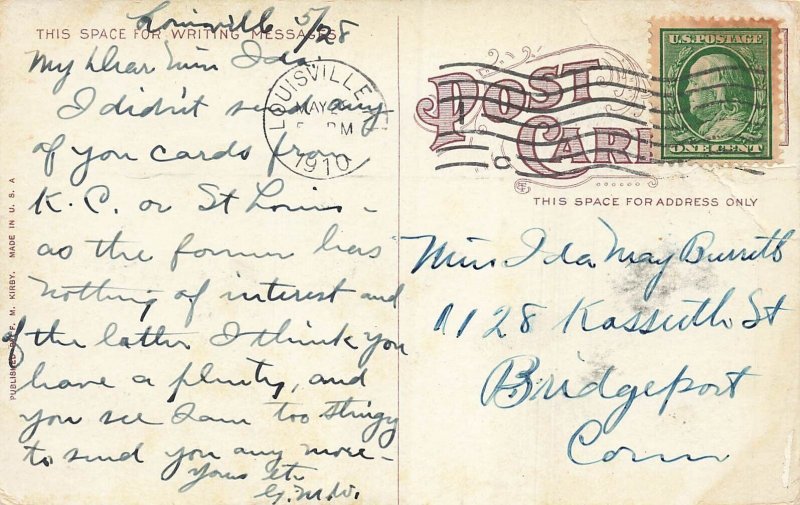 Louisville 5/28
THIS SPACE FOR WRITING MESSAGES
My Dear Miss Ida.
I didn't send any
of you cards from
K.C. or St Louis -
as the former has
nothing of interest and
of the latter I think you
have a plenty, and
you see I am too stingy
to send you any more -
Yours etc.
G.M.W.
PUBLISHED BY F. M. KIRBY. MADE IN U.S.A
LOUISVILLE
MAY
PM
1910
POST CARD
U.S. POSTAGE
ONE CENT
THIS SPACE FOR ADDRESS ONLY
Miss Ida May Burritt
1128 Kossuth St
Bridgeport
Conn